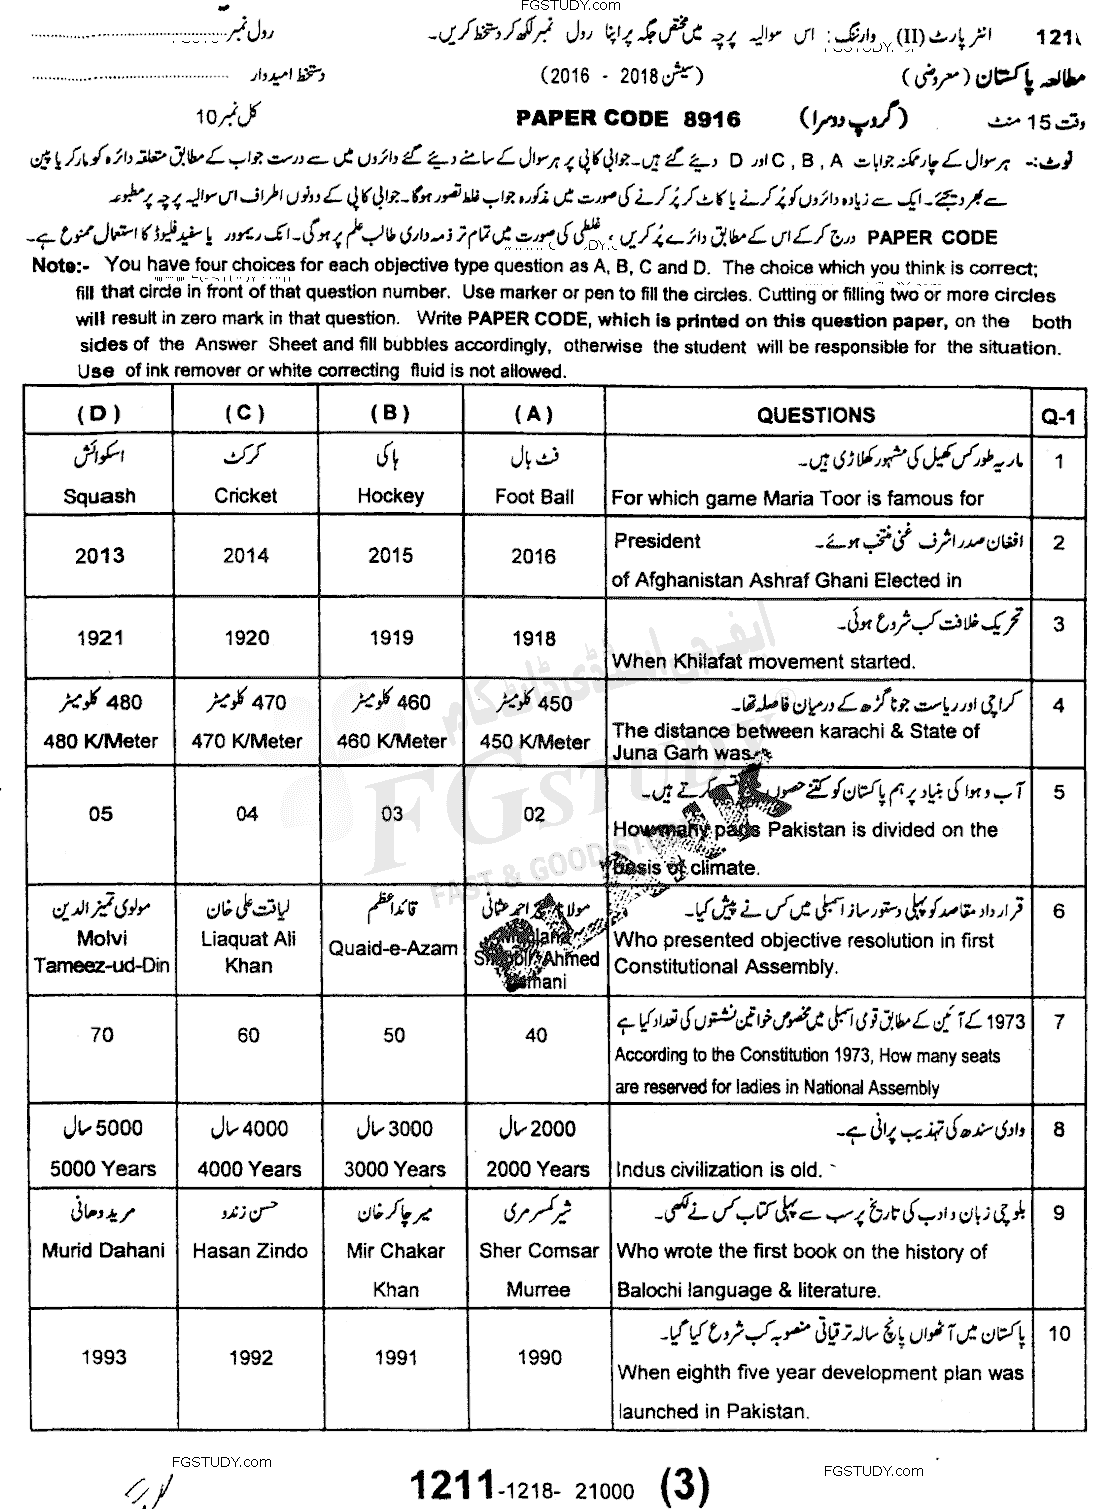 FGSTUDY.com
121 انٹر پارٹ (II) وارننگ: اس سوالیہ پرچہ میں مختص جگہ پر اپنا رول نمبر لکھ کر دستخط کریں۔ رول نمبر
مطالعہ پاکستان (معروضی) (سیشن 2018 - 2016) دستخط امیدوار
وقت 15 منٹ (گروپ دوسرا) PAPER CODE 8916 کل نمبر 10
نوٹ:- ہر سوال کے چار ممکنہ جوابات A , B , C اور D دیئے گئے ہیں۔ جوابی کاپی پر ہر سوال کے سامنے دیئے گئے دائروں میں سے درست جواب کے مطابق متعلقہ دائرہ کو مارکر یا پین
سے بھر دیجئے۔ ایک سے زیادہ دائروں کو پُر کرنے یا کاٹ کر پُر کرنے کی صورت میں مذکورہ جواب غلط تصور ہوگا۔ جوابی کاپی کے دونوں اطراف اس سوالیہ پرچہ پر مطبوعہ
PAPER CODE درج کر کے اس کے مطابق دائرے پُر کریں، غلطی کی صورت میں تمام تر ذمہ داری طالب علم پر ہوگی۔ انک ریموور یا سفید فلیوڈ کا استعمال ممنوع ہے۔
Note:- You have four choices for each objective type question as A, B, C and D. The choice which you think is correct;
fill that circle in front of that question number. Use marker or pen to fill the circles. Cutting or filling two or more circles
will result in zero mark in that question. Write PAPER CODE, which is printed on this question paper, on the both
sides of the Answer Sheet and fill bubbles accordingly, otherwise the student will be responsible for the situation.
Use of ink remover or white correcting fluid is not allowed.
(D) (C) (B) (A) QUESTIONS Q-1
اسکوائش کرکٹ ہاکی فٹ بال ماریہ طور کس کھیل کی مشہور کھلاڑی ہیں۔ 1
Squash Cricket Hockey Foot Ball For which game Maria Toor is famous for
President افغان صدر اشرف غنی منتخب ہوئے۔ 2
2013 2014 2015 2016
of Afghanistan Ashraf Ghani Elected in
تحریک خلافت کب شروع ہوئی۔ 3
1921 1920 1919 1918
When Khilafat movement started.
480 کلومیٹر 470 کلومیٹر 460 کلومیٹر 450 کلومیٹر کراچی اور ریاست جوناگڑھ کے درمیان فاصلہ تھا۔ 4
480 K/Meter 470 K/Meter 460 K/Meter 450 K/Meter The distance between karachi & State of
Juna Garh was
آب و ہوا کی بنیاد پر ہم پاکستان کو کتنے حصوں کرتے ہیں۔ 5
05 04 03 02
How many parts Pakistan is divided on the
basis of climate.
مولوی تمیز الدین لیاقت علی خان قائداعظم مولانا احمد عثمانی قرارداد مقاصد کو پہلی دستور ساز اسمبلی میں کس نے پیش کیا۔ 6
Molvi Liaquat Ali Quaid-e-Azam Who presented objective resolution in first
Tameez-ud-Din Khan Ahmed Constitutional Assembly.
1973 کے آئین کے مطابق قومی اسمبلی میں مخصوص خواتین نشستوں کی تعداد کیا ہے 7
70 60 50 40
According to the Constitution 1973, How many seats
are reserved for ladies in National Assembly
5000 سال 4000 سال 3000 سال 2000 سال وادی سندھ کی تہذیب پرانی ہے۔ 8
5000 Years 4000 Years 3000 Years 2000 Years Indus civilization is old.
مرید دھانی حسن زندو میر چاکر خان شیر کسر مری بلوچی زبان و ادب کی تاریخ پر سب سے پہلی کتاب کس نے لکھی۔ 9
Murid Dahani Hasan Zindo Mir Chakar Sher Comsar Who wrote the first book on the history of
Khan Murree Balochi language & literature.
پاکستان میں آٹھواں پانچ سالہ ترقیاتی منصوبہ کب شروع کیا گیا۔ 10
1993 1992 1991 1990
When eighth five year development plan was
launched in Pakistan.
FGSTUDY.com FGSTUDY.com
1211-1218- 21000 (3)